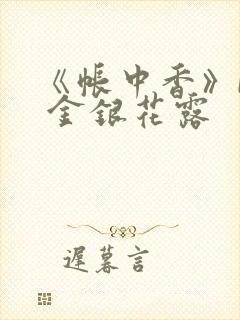 《帐中香》
金银花露
迟暮言